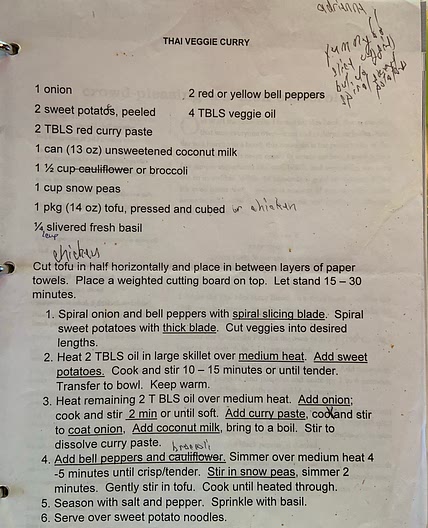 adrianna
yummy
THAI VEGGIE CURRY
1 onion 2 red or yellow bell peppers
2 sweet potatos, peeled 4 TBLS veggie oil
2 TBLS red curry paste
1 can (13 oz) unsweetened coconut milk
1 ½ cup cauliflower or broccoli
1 cup snow peas
1 pkg (14 oz) tofu, pressed and cubed or chicken
¼ slivered fresh basil
cup
chicken
Cut tofu in half horizontally and place in between layers of paper
towels. Place a weighted cutting board on top. Let stand 15 – 30
minutes.
1. Spiral onion and bell peppers with spiral slicing blade. Spiral
sweet potatoes with thick blade. Cut veggies into desired
lengths.
2. Heat 2 TBLS oil in large skillet over medium heat. Add sweet
potatoes. Cook and stir 10 – 15 minutes or until tender.
Transfer to bowl. Keep warm.
3. Heat remaining 2 T BLS oil over medium heat. Add onion;
cook and stir 2 min or until soft. Add curry paste, cook and stir
to coat onion, Add coconut milk, bring to a boil. Stir to
dissolve curry paste.
broccoli
4. Add bell peppers and cauliflower. Simmer over medium heat 4
-5 minutes until crisp/tender. Stir in snow peas, simmer 2
minutes. Gently stir in tofu. Cook until heated through.
5. Season with salt and pepper. Sprinkle with basil.
6. Serve over sweet potato noodles.